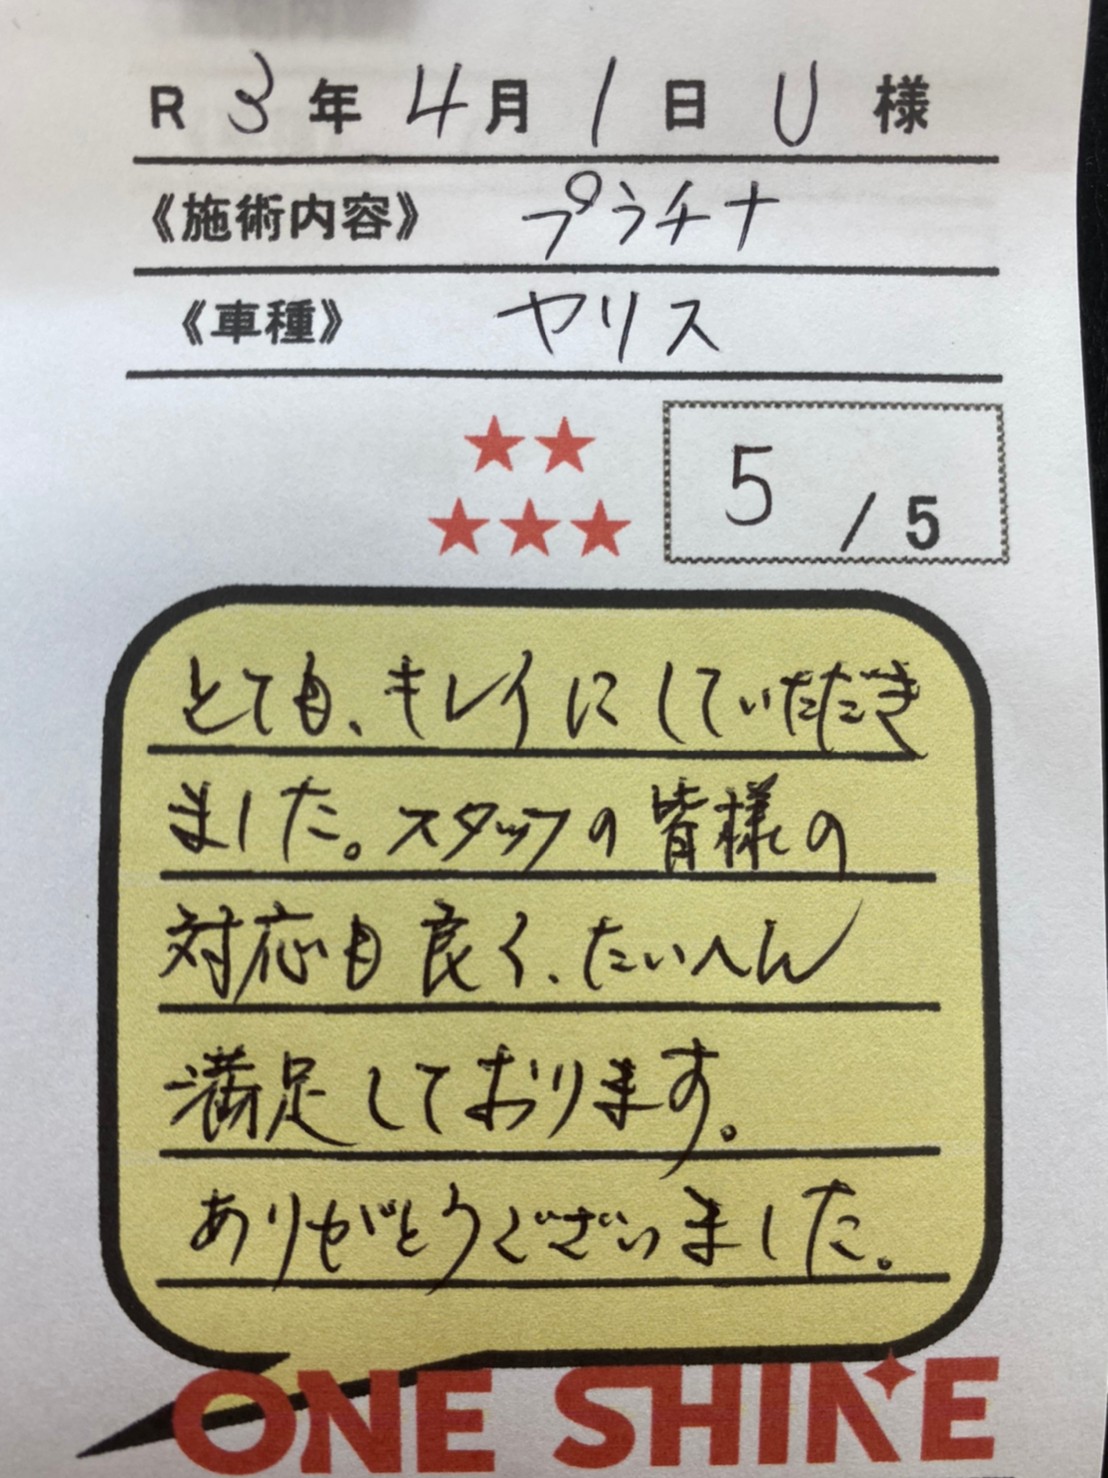 R 3 年 4 月 1 日 U 様
《施術内容》 プラチナ
《車種》 ヤリス
5 / 5
とても、キレイにしていただき
ました。スタッフの皆様の
対応も良く、たいへん
満足しております。
ありがとうございました。
ONE SHINE